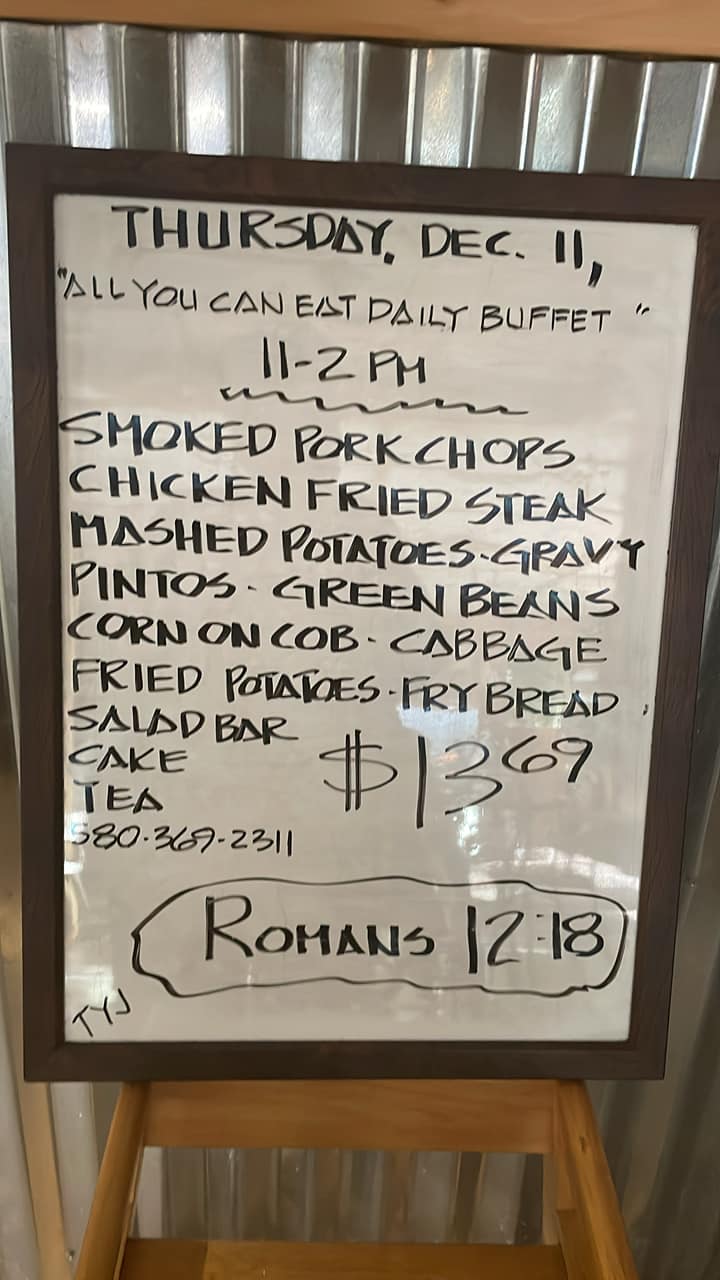 THURSDAY, DEC. 11,
"ALL YOU CAN EAT DAILY BUFFET "
11-2 PM
SMOKED PORK CHOPS
CHICKEN FRIED STEAK
MASHED POTATOES-GRAVY
PINTOS - GREEN BEANS
CORN ON COB - CABBAGE
FRIED POTATOES - FRY BREAD
SALAD BAR
CAKE
TEA
$13 69
580-369-2311
ROMANS 12:18
TYJ